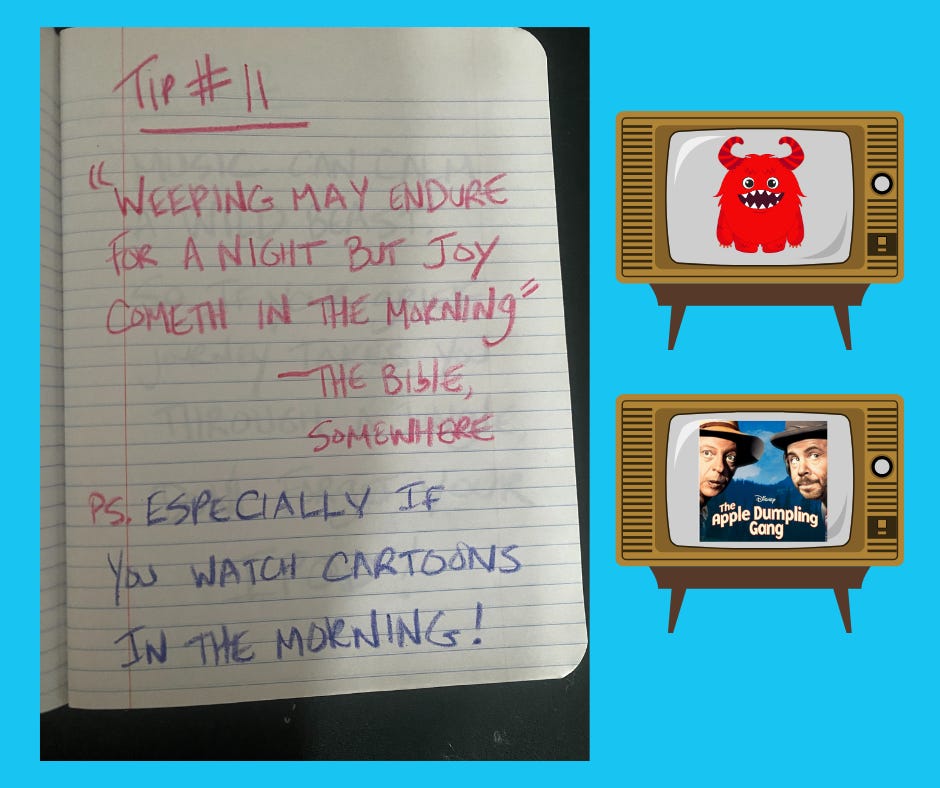 Tip # 11
"WEEPING MAY ENDURE
FOR A NIGHT BUT JOY
COMETH IN THE MORNING"
—THE BIBLE,
SOMEWHERE
PS. ESPECIALLY IF
YOU WATCH CARTOONS
IN THE MORNING!
Disney
The
Apple Dumpling
Gang